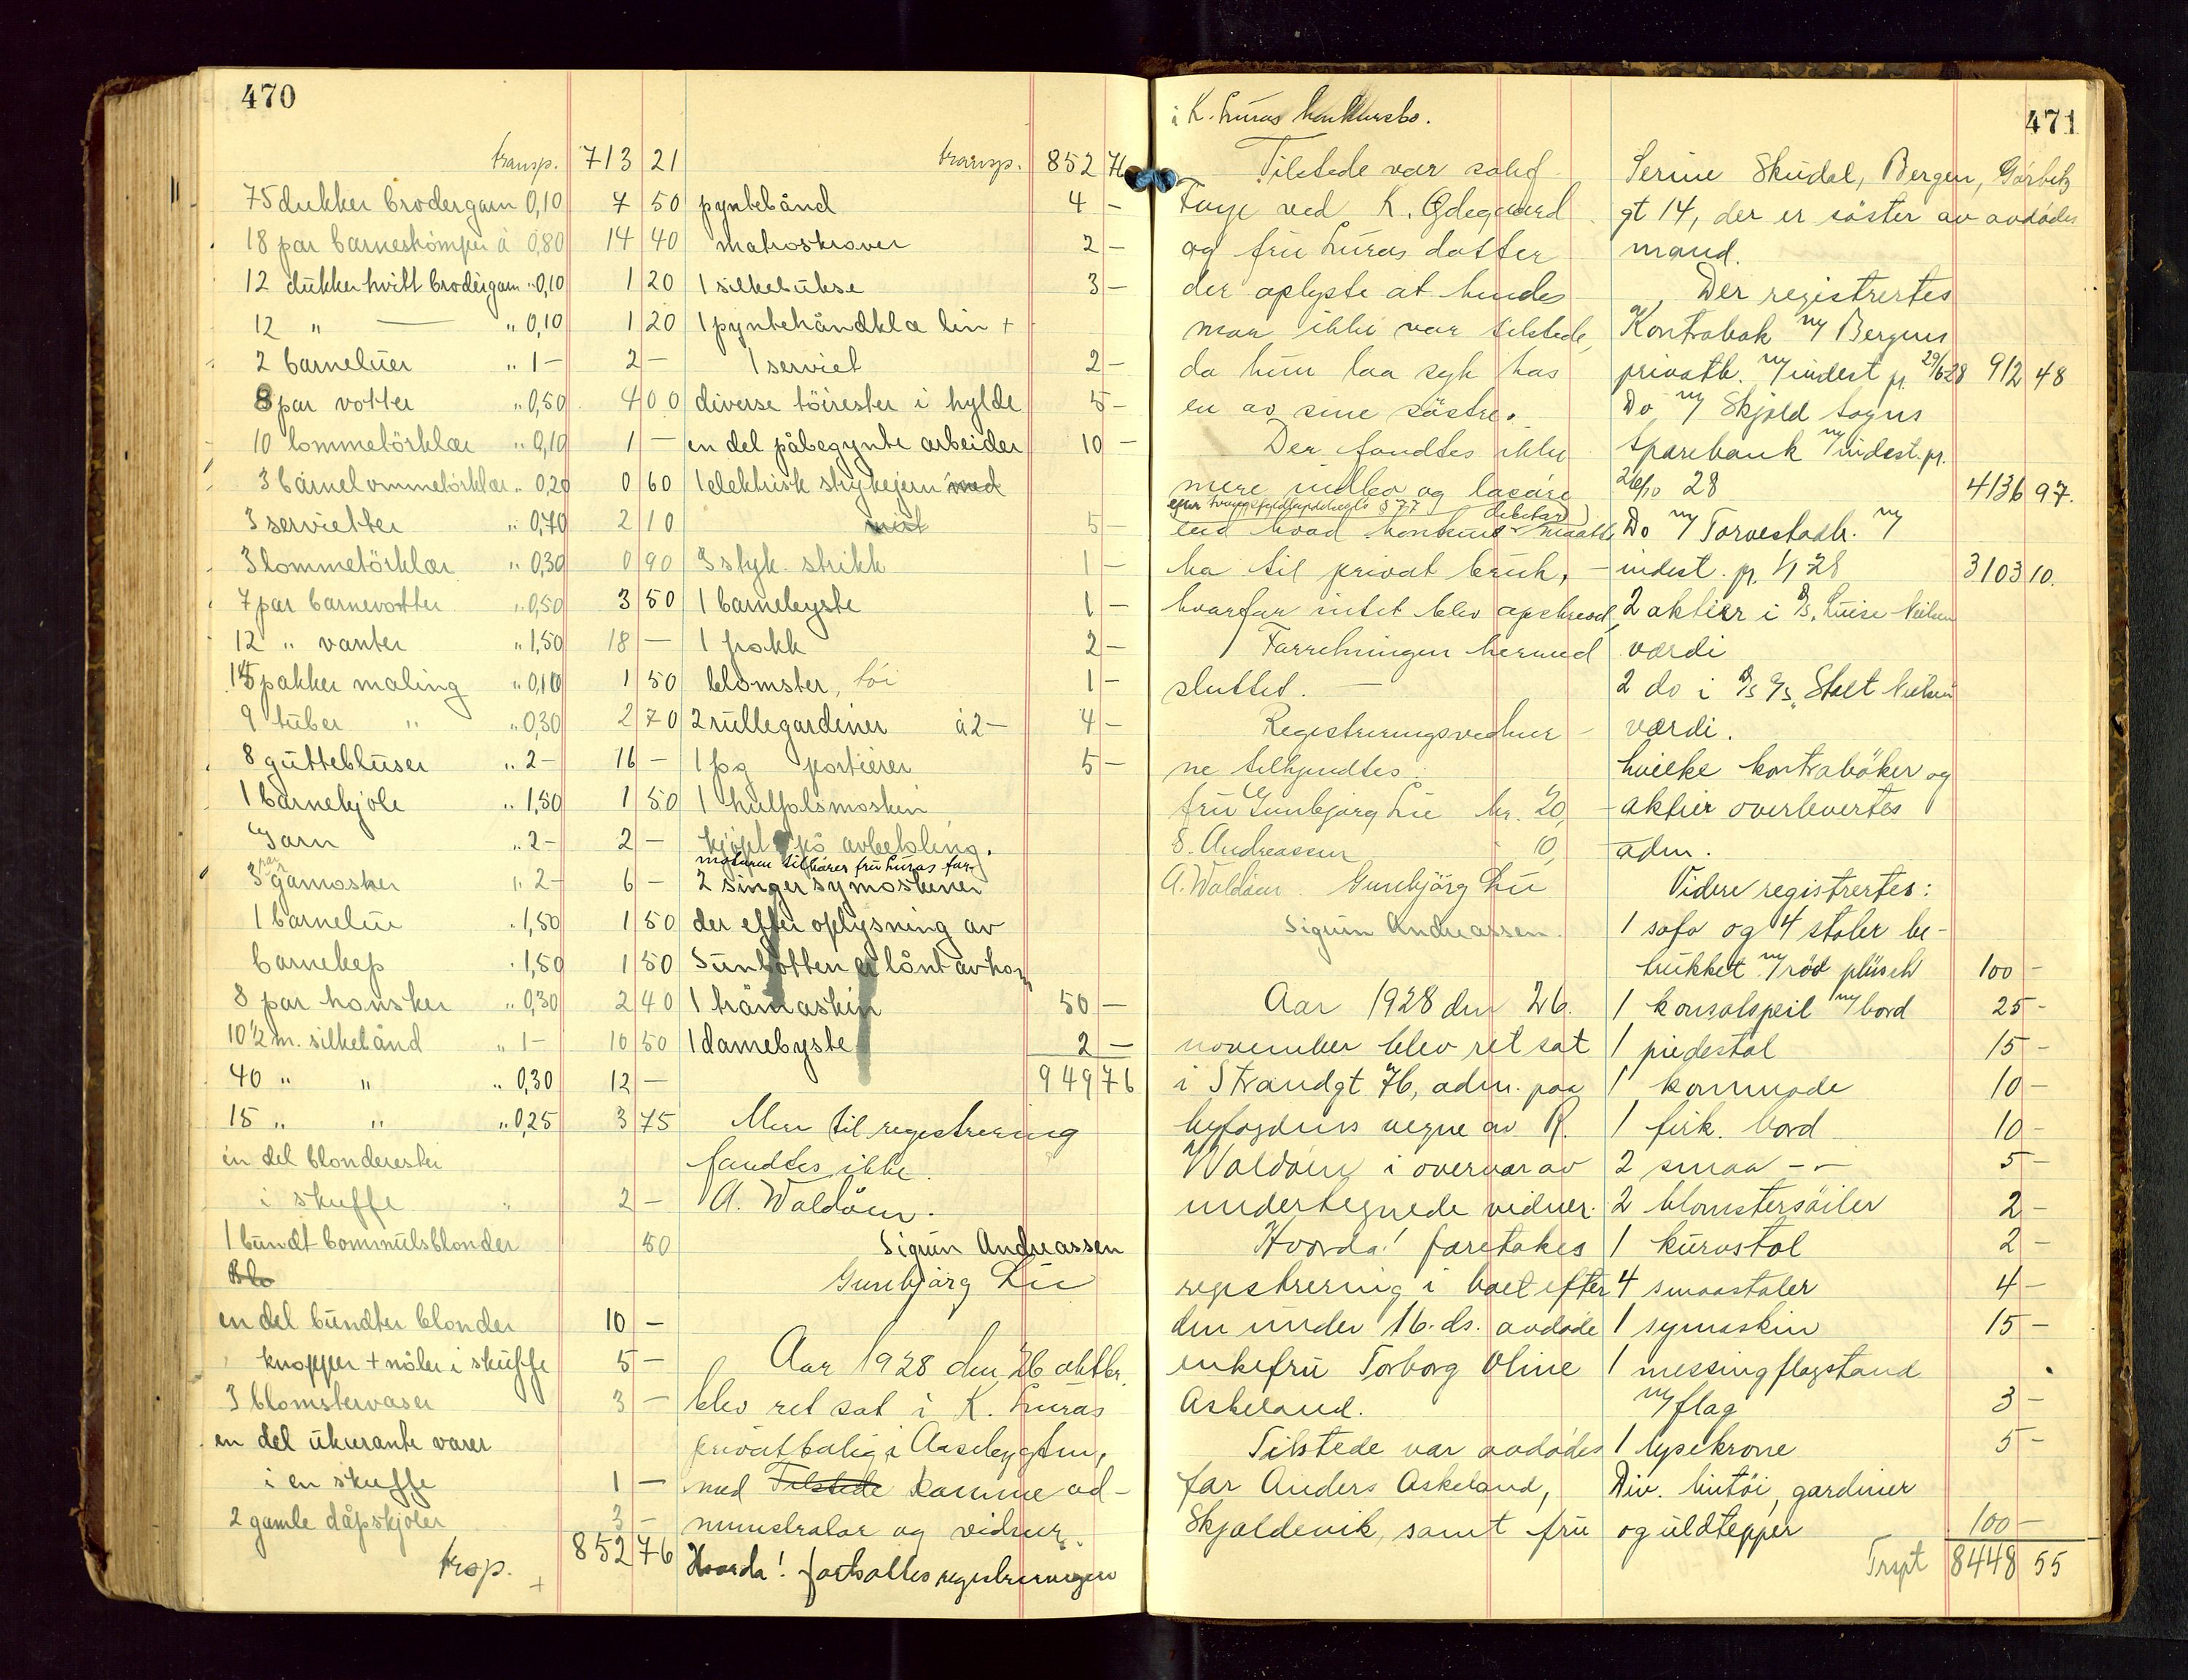 470
transp. 713 21
75 dukker brodergarn 0,10 7 50
18 par barneskömper á 0,80 14 40
12 dukker hvitt brodergarn " 0,10 1 20
12 " — " 0,10 1 20
2 barneluer " 1 - 2 -
8 par votter " 0,50 4 00
10 lommetörklær " 0,10 1 -
3 barnelommetörklær " 0,20 0 60
3 servietter " 0,70 2 10
3 lommetörklær " 0,30 0 90
7 par barnevotter " 0,50 3 50
12 " vanter " 1,50 18 -
15 pakker maling " 0,10 1 50
9 tuber " " 0,30 2 70
8 gutteblúser " 2 - 16 -
1 barnekjole " 1,50 1 50
Garn " 2 - 2 -
3 par gamasker " 2 - 6 -
1 barnelue " 1,50 1 50
barnekep " 1,50 1 50
8 par hansker " 0,30 2 40
10 1/2 m. silkebånd " 1 - 10 50
40 " " " 0,30 12 -
15 " " " 0,25 3 75
en del blonderester
i skuffe " 2 -
1 bundt bommulsblonder 50
Blo
en del bundter blonder 10 -
knapper + nåler i skuffe 5 -
3 blomstervaser 3 -
en del ukurante varer
i en skuffe 1 -
2 gamle dåpskjoler 3 -
trsp. 852 76
transp. 852 76
pyntebånd 4 -
matroskraver 2 -
1 silkebukse 3 -
1 pyntehåndklæ lin +
1 serviet 2 -
diverse töirester i hylde 5 -
en del påbegynte arbeider 10 -
1 elektrisk strykejern med
rist 5 -
3 styk. strikk 1 -
1 barnebyste 1 -
1 pakk 2 -
blomster, töi 1 -
2 rullegardiner á 2 - 4 -
1 fag portierer 5 -
1 hulfalsmaskin
kjöpt på avbetaling.
motoren tilhörer fru Luras far
2 singer symaskener
der efter oplysning av
Sunbotten er lånt av ham
1 håmaskin 50 -
1 damebyste 2 -
949 76
Mere til registrering
fandtes ikke.
A. Waldöen.
Sigrun Andreassen
Gunbjörg Lie
Aar 1928 den 26 oktbr.
blev ret sat i K. Luras
privatbolig i Aasebygden,
med Tilstede samme ad-
ministrator og vidner.
Hvorda! fortsattes registreringen
i K. Luras konkursbo.
471
Tilstede var sakf.
Faye ved K. Ødegaard
og fru Luras datter
der oplyste at hendes
mor ikke var tilstede,
da hun laa syk hos
en av sine søstre.
Der fandtes ikke
mere indbo og løsøre
efter tvangsfuldbyrdelsesls § 77 debitor
end hvad konkurs maatte
ha til privat bruk,
hvorfor intet blev opskrevet,
Forretningen hermed
sluttet.
Registreringsvidner-
ne tilkjendtes:
fru Gunbjörg Lie kr. 20,
S. Andreassen " 10,
A. Waldöen. Gunbjörg Lie
Sigrun Andreassen.
Aar 1928 den 26.
november blev ret sat
i Strandgt 76, adm. paa
byfogdens vegne av R.
Waldöen i overvær av
undertegnede vidner.
Hvorda! foretokes
registrering i boet efter
den under 16. ds. avdøde
enkefru Torborg Oline
Askeland.
Tilstede var avdødes
far Anders Askeland,
Skjoldevik, samt fru
Serine Skudal, Bergen, Görbitz
gt 14, der er söster av avdødes
mand.
Der registrertes
Kontrabok m/ Bergens
privatb. m/ indest pr. 29/6 28 912 48
Do m/ Skjold sogns
Sparebank m/ indest. pr.
26/10 28 4136 97.
Do m/ Torvestadb. m/
indest. pr. 1/1 28 3103 10.
2 aktier i D/S. Luise Nielsen
værdi
2 do i D/S A/S. Stolt Nielsen
værdi.
hvilke kontrabøker og
aktier overlevertes
adm.
Videre registrertes:
1 sofa og 4 stoler be-
trukket m/ röd plüsch 100 -
1 konsolspeil m/ bord 25 -
1 piedestal 15 -
1 kommode 10 -
1 firk. bord 10 -
2 smaa -"- 5 -
2 blomstersöiler 2 -
1 kurvstol 2 -
4 smaastoler 4 -
1 symaskin 15 -
1 messingflagstand
m/ flag 3 -
1 lysekrone 5 -
Div. lintöi, gardiner
og uldtepper 100 -
Trspt 8448 55